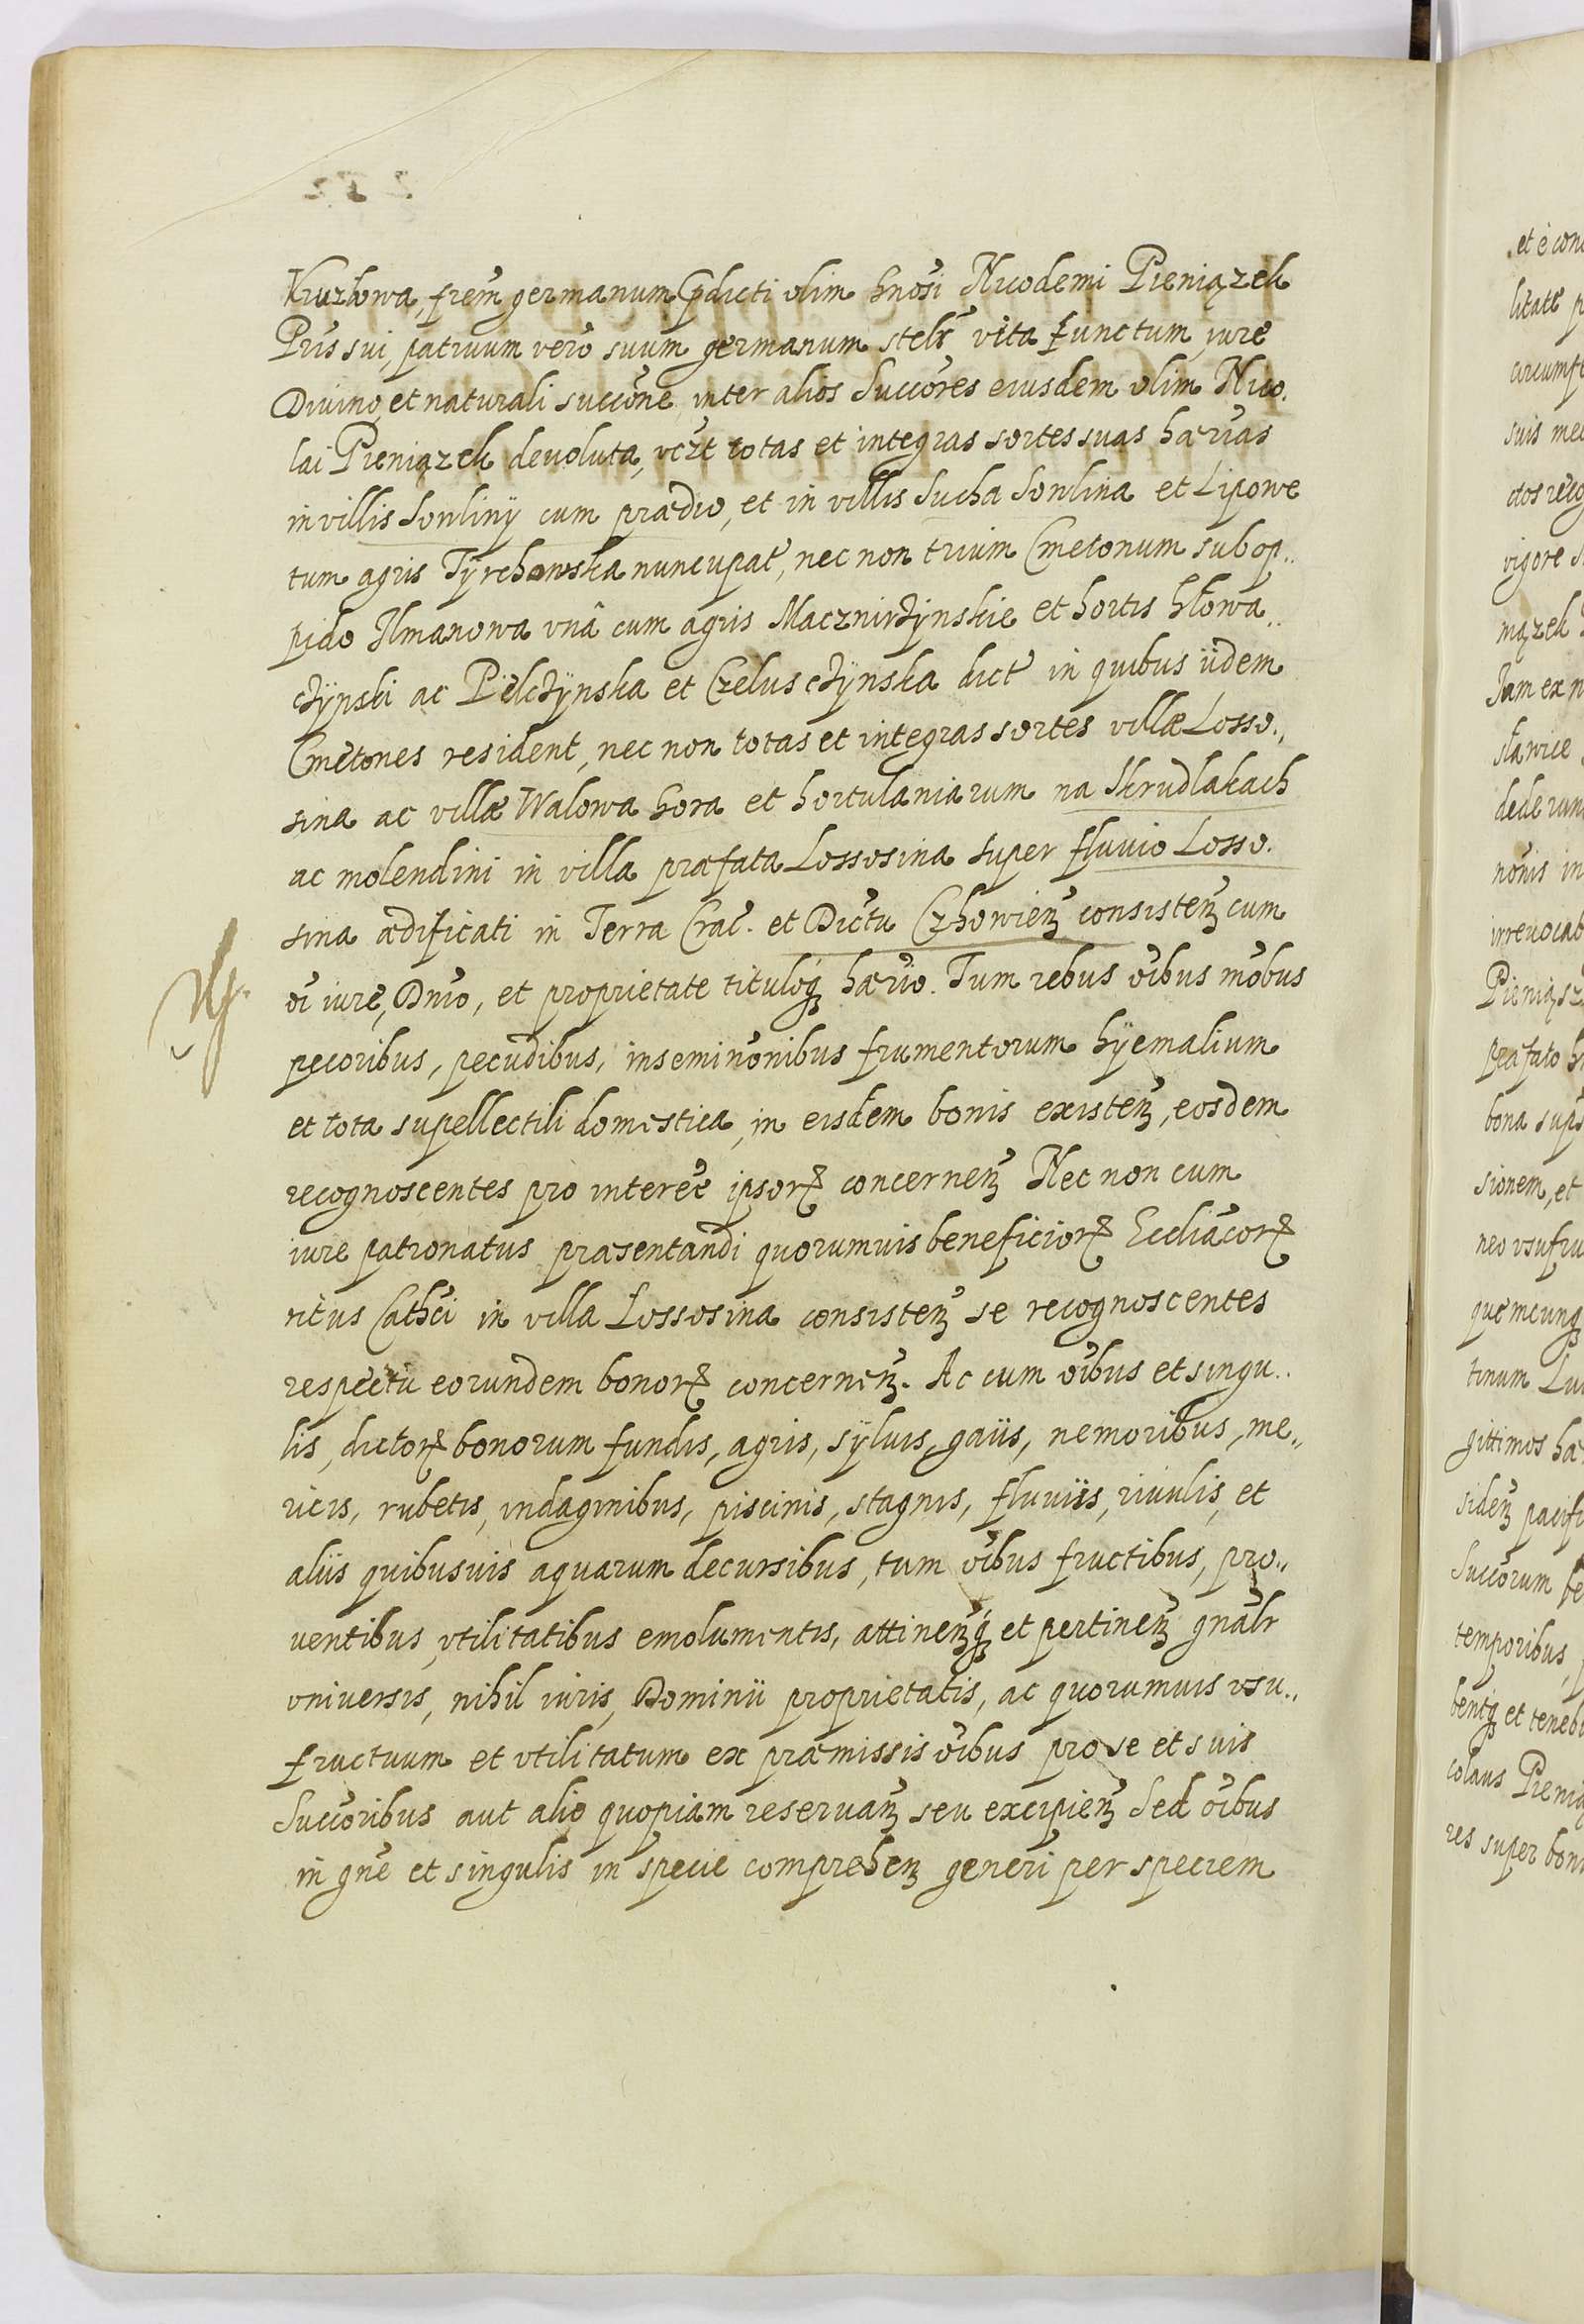 Kruzlowa, frem germanum pdicti olim Gnosi Nicodemi Pieniązek
Pris sui, patruum vero suum germanum stelr vita functum, iure
Divino, et naturali succone inter alios Succores eiusdem olim Nico.
lai Pieniązek devoluta, vczt totas et integras sortes suas haerias
in villis Sowliny cum praedio, et in villis Sucha Sowlina et Lipowe
tum agris Tyrchowska nuncupat, nec non trium Cmetonum sub op..
pido Ilmanowa vnâ cum agris et hortis
ac Pielczynska et dict in quibus iidem
Cmetones resident, nec non totas et integras sortes villae Losso..
sina ac villae Walowa Gora et hortulaniarum na Skrudlakach
ac molendini in villa praefata Lossosina super fluvio Losso.
sina aedificati in Terra Crac. et Dictu Czhowien consisten cum
oi iure, Dnio, et proprietate tituloq haerio. Tum rebus oibus mobus
pecoribus, pecudibus, inseminonibus frumentorum hyemalium
et tota supellectili domestica, in eisdem bonis existen, eosdem
recognoscentes pro interee ipsor concernen Nec non cum
iure patronatus praesentandi quorumvis beneficior Eccliacor
ritus Cathci in villa Lossosina consisten se recognoscentes
respectu eorundem bonor concernen. Ac cum oibus et singu..
lis, dictor bonorum fundis, agris, sylvis, gaiis, nemoribus, me..
ricis, rubetis, indaginibus, piscinis, stagnis, fluviis, rivulis, et
aliis quibusvis aquarum decursibus, tum oibus fructibus, pro..
ventibus, vtilitatibus emolumentis, attinenq et pertinen gnalr
vniversis, nihil iuris, Dominii proprietatis, ac quorumvis vsu..
fructuum et vtilitatum ex praemissis oibus pro se et suis
Succoribus aut alio quopiam reservan seu excipien Sed oibus
in gne et singulis in specie comprehen generi per speciem